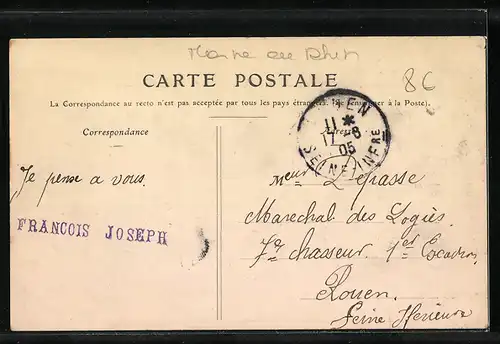 Marne au Rhin
8C
CARTE POSTALE
La Correspondance au recto n'est pas acceptée par tous les pays étrangers. (Se renseigner à la Poste).
Correspondance
Adresse
11 *
17 - 8
05
SEINE INFRE
Je pense a vous.
FRANCOIS JOSEPH
Meur Lepasse
Marechal des Logis
7e chasseur. 1er Escadron
Rouen.
Seine Inferieure